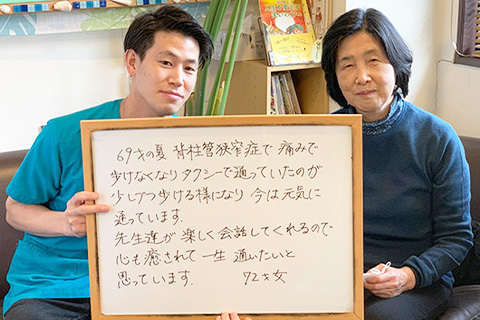 69才の夏 脊柱管狭窄症で 痛みで
歩けなくなり タクシーで通っていたのが
少しづつ歩ける様になり 今は元気に
通っています.
先生達が 楽しく 会話してくれるので
心も癒されて 一生 通いたいと
思っています. 72才女